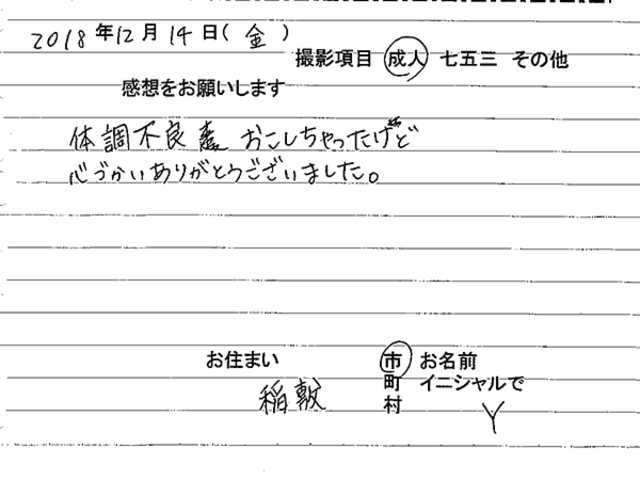 2018年12月14日(金)
撮影項目 成人 七五三 その他
感想をお願いします
体調不良 おこしちゃったけど
心づかいありがとうございました。
お住まい 市 お名前
町 イニシャルで
稲敷 村 Y